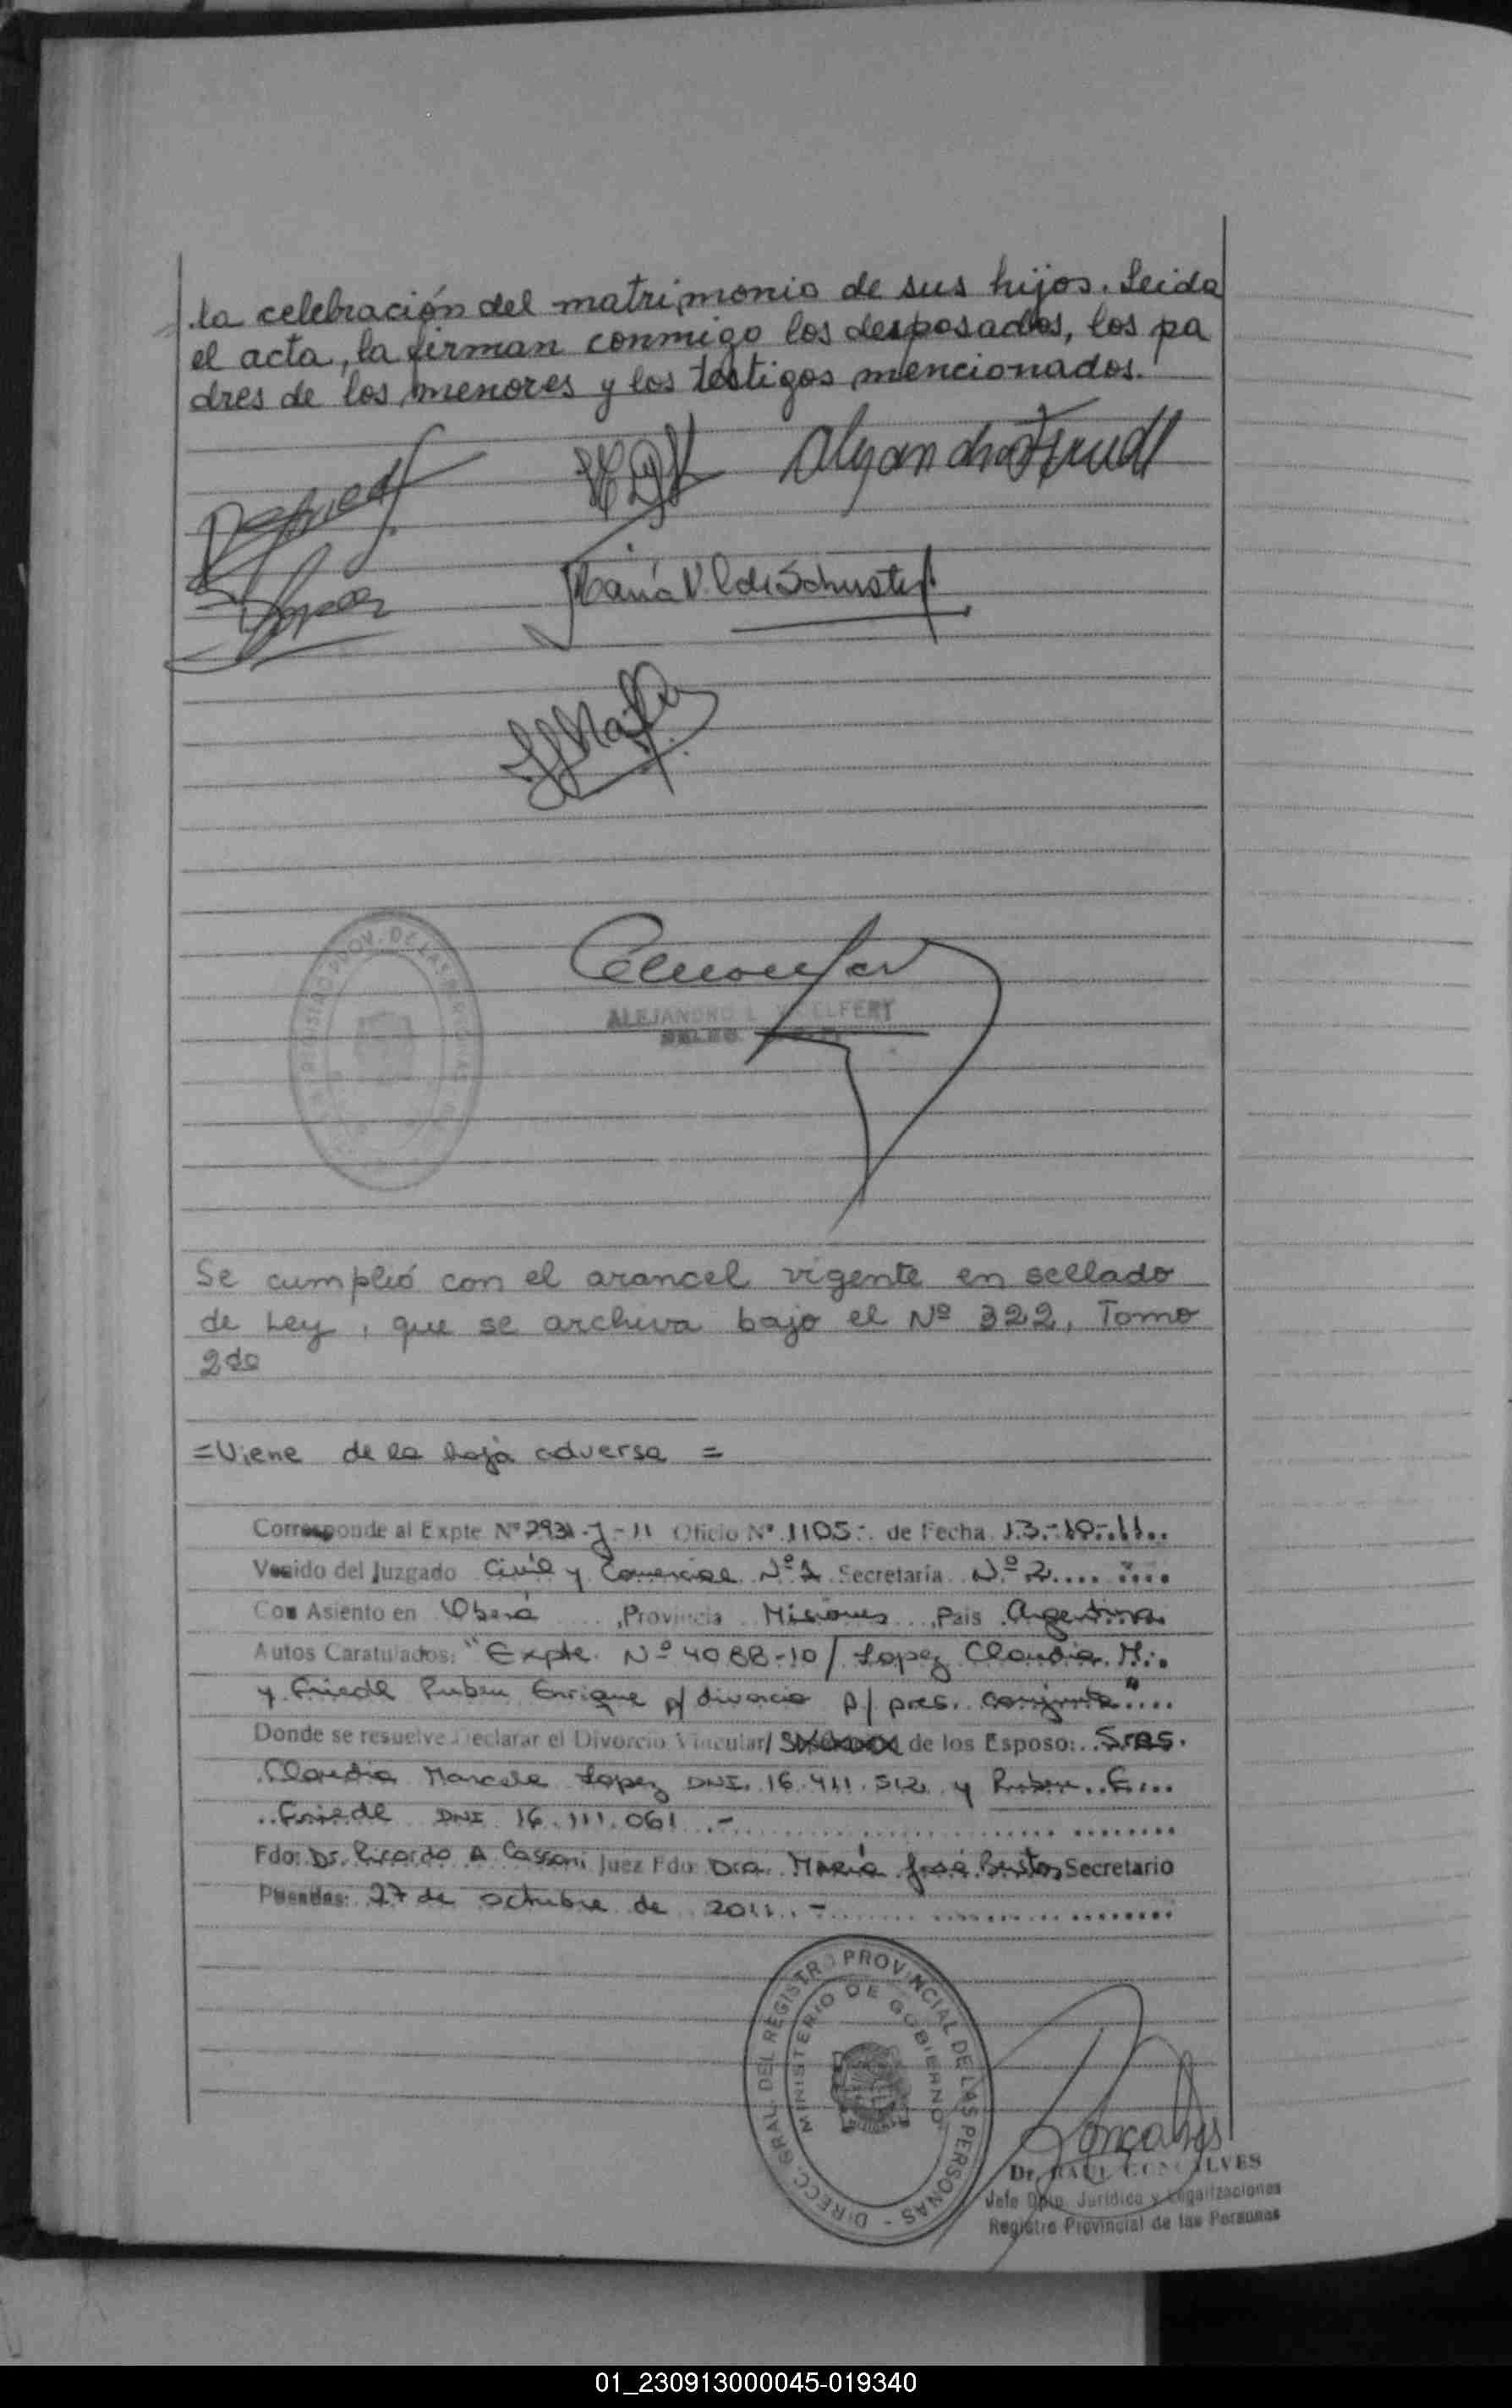 la celebración del matrimonio de sus hijos. Leida
el acta, la firman conmigo los desposados, los pa
dres de los menores y los testigos mencionados.
Alejandro Friedl
María V. L de Schuster
ALEJANDRO L
Se cumplió con el arancel vigente en sellado
de Ley, que se archiva bajo el Nº 322, Tomo
2do
=Viene de la hoja adversa =
Corresponde al Expte Nº 2931-J-11 Oficio Nº 1105-. de Fecha 13-10-11..
Venido del Juzgado Civil y Comercial Nº 1 Secretaría Nº 2....
Con Asiento en Oberá ,Provincia Misiones ,País Argentina
Autos Caratulados: "Expte. Nº 4088-10/ Lopez Claudia M.
y Friedl Ruben Enrique p/ divorcio p/ pres. conjunta"....
Donde se resuelve Declarar el Divorcio Vincular/ de los Esposo: Sres.
Claudia Marcela Lopez DNI. 16.411.512 y Ruben E...
Friedl DNI 16.111.061 .-
Fdo: Dr. Ricardo A Cassoni Juez Fdo: Dra. María José Bustos Secretario
Posadas: 27 de octubre de 2011.-
DIRECC. GRAL. DEL REGISTRO PROVINCIAL DE LAS PERSONAS -
MINISTERIO DE GOBIERNO
Dr. RAUL GONCALVES
Jefe Dpto. Jurídico y Legalizaciones
Registro Provincial de las Personas
01_230913000045-019340